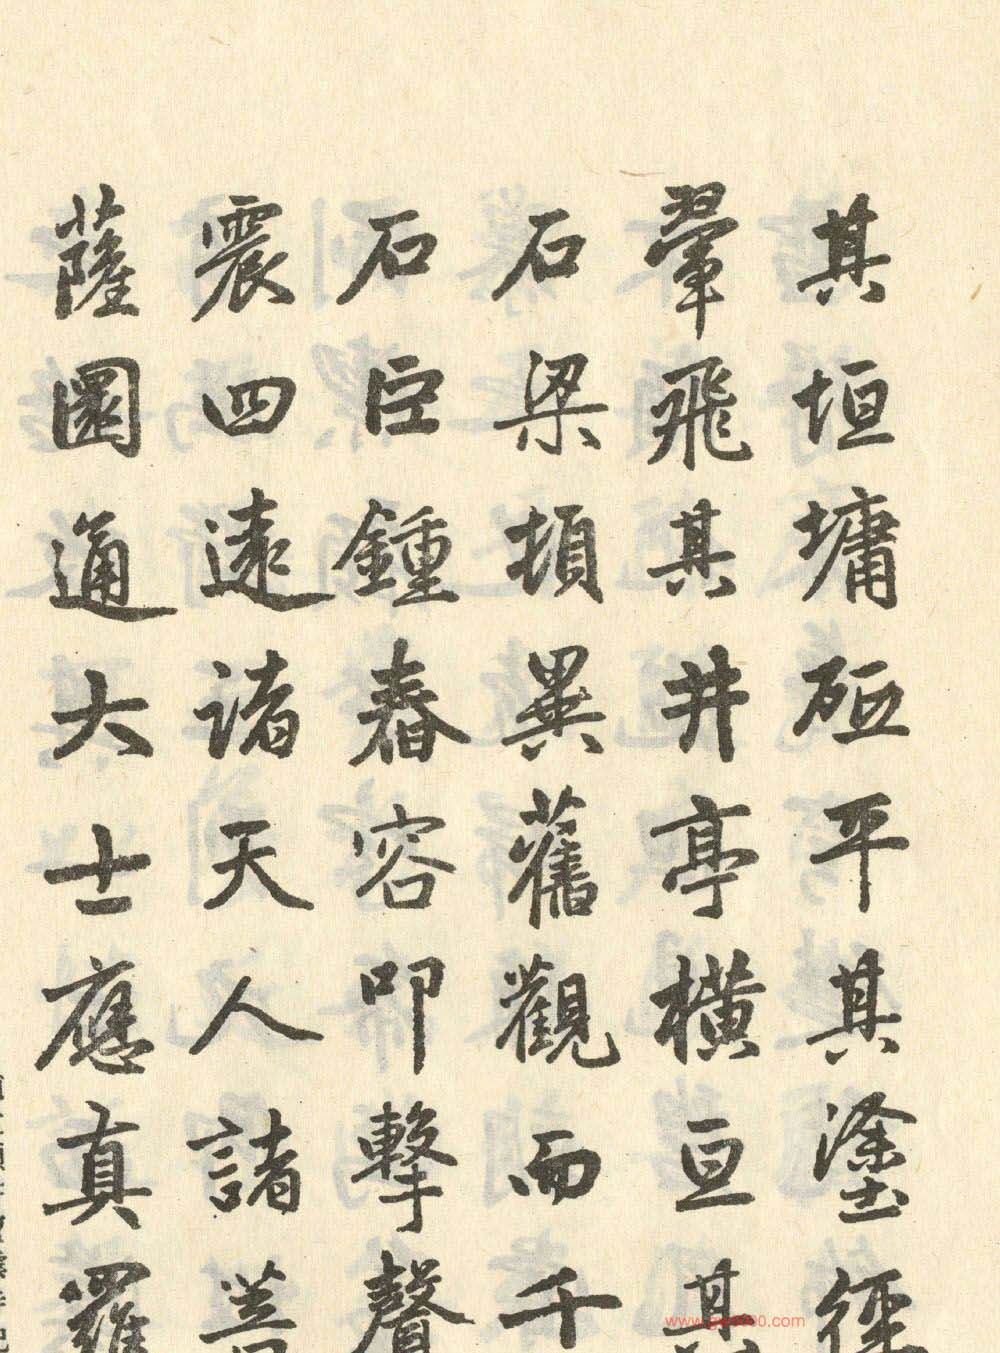 其垣墉砥平其塗徑
翬飛其井亭橫亘其
石梁頓異舊觀而千
石巨鍾舂容叩擊聲
震四遠諸天人諸善
薩圓通大士應真羅